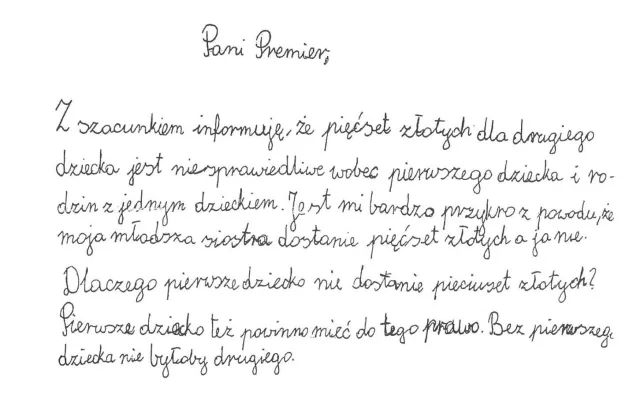 Pani Premier,
Z szacunkiem informuję, że pięćset złotych dla drugiego
dziecka jest niesprawiedliwe wobec pierwszego dziecka i ro-
dzin z jednym dzieckiem. Jest mi bardzo przykro z powodu, że
moja młodsza siostra dostanie pięćset złotych a ja nie.
Dlaczego pierwsze dziecko nie dostanie pięciuset złotych?
Pierwsze dziecko też powinno mieć do tego prawo. Bez pierwszeg
dziecka nie byłoby drugiego.